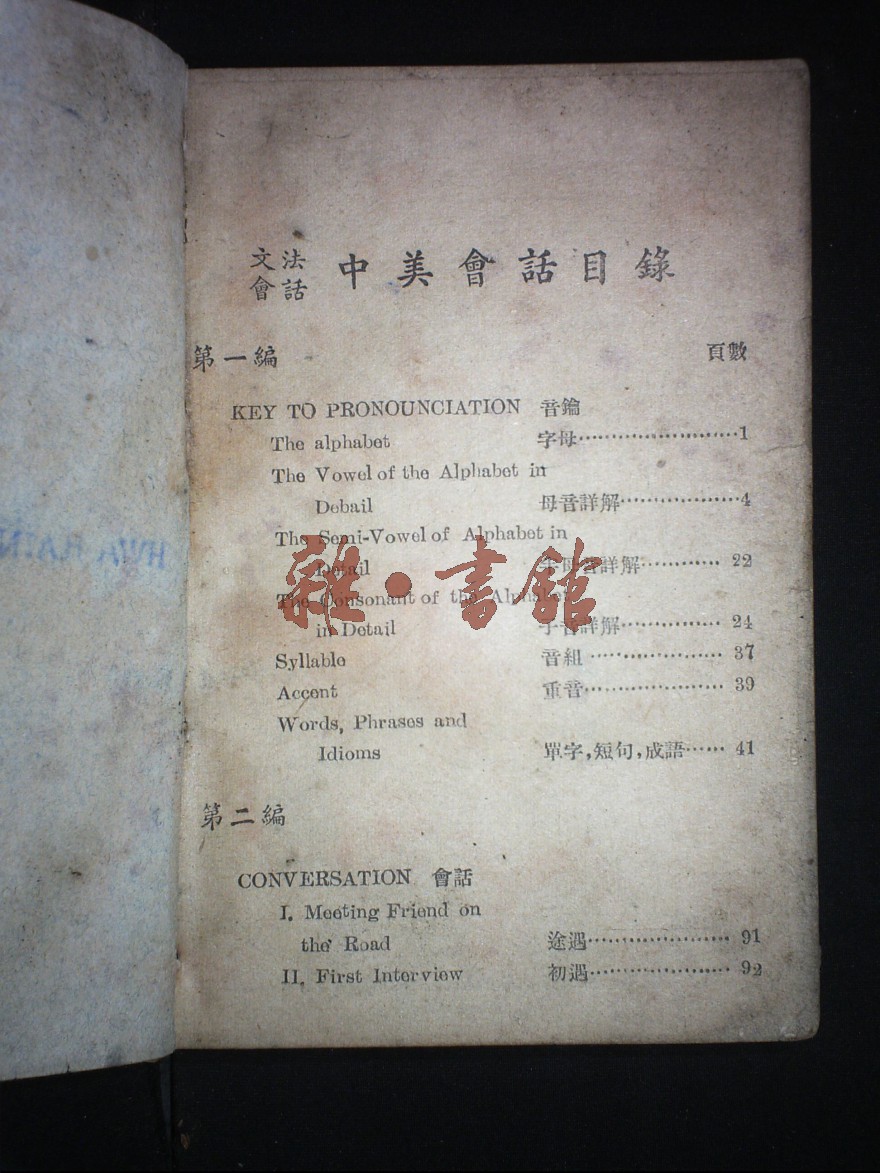 文法
會話
中美會話目錄
第一編 頁數
KEY TO PRONOUNCIATION 音鑰
The alphabet 字母························1
The Vowel of the Alphabet in
Debail 母音詳解··················4
The Semi-Vowel of Alphabet in
Detail 半母音詳解············ 22
The Consonant of the Alphabet
in Detail 子音詳解··············· 24
雜·書館
Syllable 音組 ···················· 37
Accent 重音····················· 39
Words, Phrases and
Idioms 單字,短句,成語······ 41
第二編
CONVERSATION 會話
I. Meeting Friend on
the Road 途遇····················· 91
II. First Interview 初遇····················· 92
HWA